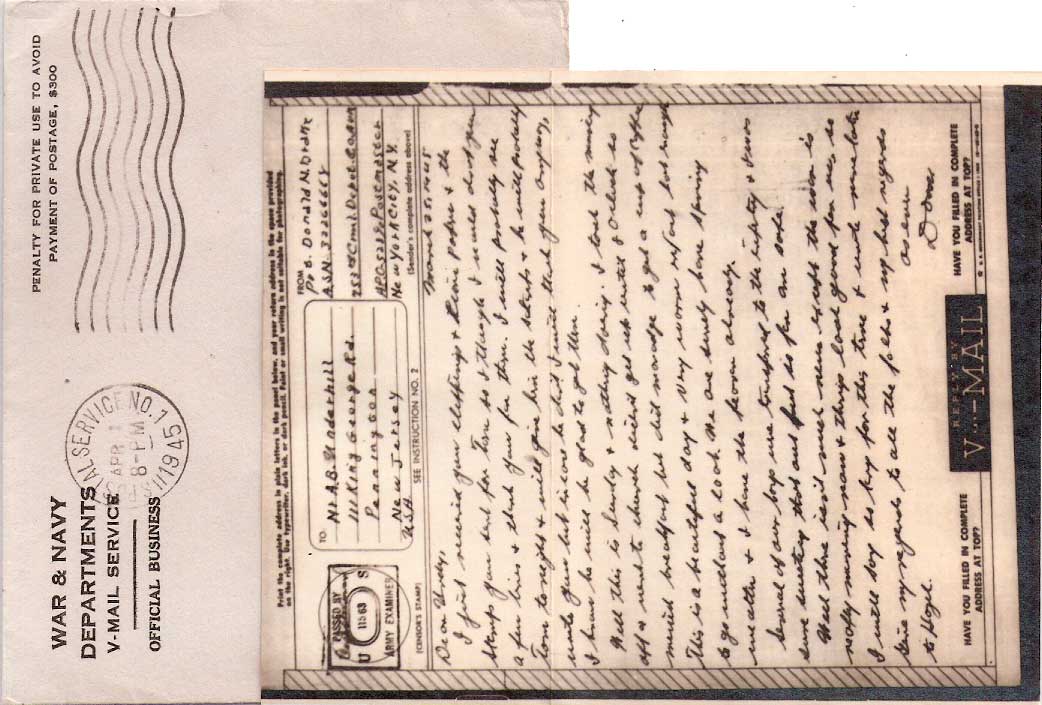 WAR & NAVY
DEPARTMENTS
V-MAIL SERVICE
OFFICIAL BUSINESS
U.S. POSTAL SERVICE NO. 1
APR 1
8-PM
1945
PENALTY FOR PRIVATE USE TO AVOID
PAYMENT OF POSTAGE, $300
Print the complete address in plain letters in the panel below, and your return address in the space provided
on the right. Use typewriter, dark ink, or dark pencil. Faint or small writing is not suitable for photographing.
PASSED BY
U 11563 S
ARMY EXAMINER
(CENSOR'S STAMP)
TO
Mr. A.B. Underhill
11 King George Rd.
Pennington
New Jersey
USA
SEE INSTRUCTION NO. 2
FROM
Donald N.
ASN. 32266
New York City, N.Y.
(Sender's complete address above)
March 25, 1945
Dear
I just received your clipping & paper & the
stamps you sent for Tom so I thought I would drop you
a few lines & thank you for them. I will probably see
Tom tonight & will give him the stamps & he will probably
write you but before he did I will thank you anyway,
I know he will be glad to get them.
Well this is Sunday & nothing doing. I took the morning
off & went to church didn't get up until 8 o'clock so
missed breakfast but did manage to get a cup of coffee.
This is a beautiful day & very warm right hot enough
to go without a coat. We are surely having spring
weather & I have the fever already.
Several of our boys were transferred to the infantry & I was
sure sweating that out but is for an.
Well there isn't much news except the war is
really moving now & things look good for us so
I will say so long for this time & write more later.
Give my regards to all the folks & my best regards
to
As ever
Don.
HAVE YOU FILLED IN COMPLETE
ADDRESS AT TOP?
REPLY BY
V···-MAIL
HAVE YOU FILLED IN COMPLETE
ADDRESS AT TOP?